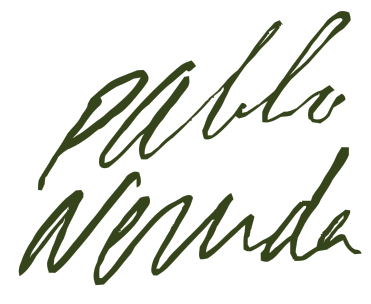 Pablo
Neruda